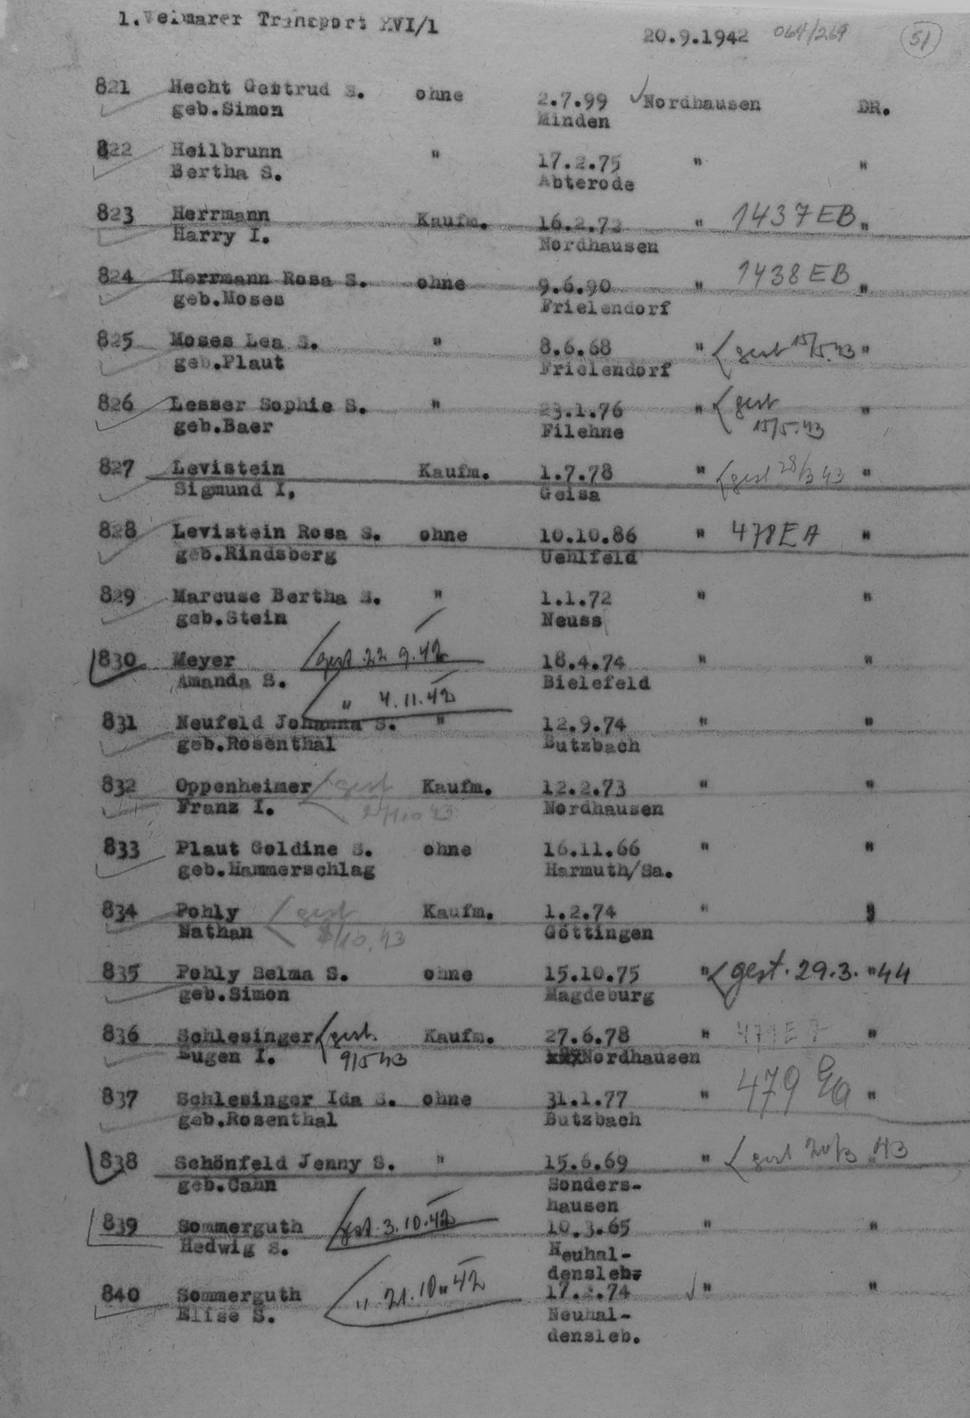 1.Weimarer Transport XVI/1
20.9.1942 064/269 51
821 Hecht Gertrud S. ohne 2.7.99 Nordhausen DR.
geb.Simon Minden
822 Heilbrunn " 17.2.75 " "
Bertha S. Abterode
823 Herrmann Kaufm. 16.2.72 " 1437 EB "
Harry I. Nordhausen
824 Herrmann Rosa S. ohne 9.6.90 " 1438 EB "
geb.Moses Frielendorf
825 Moses Lea S. " 8.6.68 " gest 15/5.43 "
geb.Plaut Frielendorf
826 Lesser Sophie S. " 23.1.76 " gest "
geb.Baer Filehne 15/5.43
827 Levistein Kaufm. 1.7.78 " gest 28/3 43 "
Sigmund I. Geisa
828 Levistein Rosa S. ohne 10.10.86 " 478 EA "
geb.Rindsberg Uehlfeld
829 Marcuse Bertha S. " 1.1.72 " "
geb.Stein Neuss
830 Meyer gest.22 9.42 18.4.74 " "
Amanda S. Bielefeld
" 4.11.42
831 Neufeld Johanna S. " 12.9.74 " "
geb.Rosenthal Butzbach
832 Oppenheimer gest Kaufm. 12.2.73 " "
Franz I. Nordhausen
833 Plaut Goldine S. ohne 16.11.66 " "
geb.Hammerschlag Harmuth/Sa.
834 Pohly gest Kaufm. 1.2.74 " "
Nathan /10.43 Göttingen
835 Pohly Selma S. ohne 15.10.75 " gest. 29.3. " 44
geb.Simon Magdeburg
836 Schlesinger gest. Kaufm. 27.6.78 " 479 E "
Eugen I. 9/5 43 xxxNordhausen
837 Schlesinger Ida S. ohne 31.1.77 " 479 Ea "
geb.Rosenthal Butzbach
838 Schönfeld Jenny S. " 15.6.69 " gest 20/3 " 43
geb.Cahn Sonders-
hausen
839 Sommerguth gest.3.10.42 10.3.65 " "
Hedwig S. Neuhal-
densleb.
840 Sommerguth " 21.10.42 17.2.74 " "
Elise S. Neuhal-
densleb.